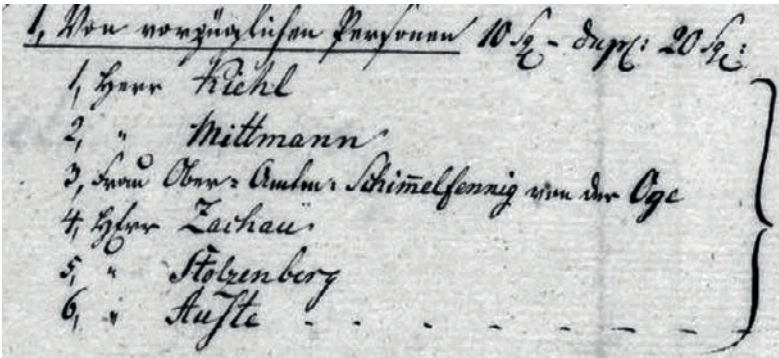 1, Von vorzüglichen Personen 10 Sg. - dupl: 20 Sg:
1, Herr Kiehl
2, " Mittmann
3, Frau Ober-Amtm: Schim̅elfennig von der Oye
4, Herr Zachau
5, " Stolzenberg
6, " Auste - - - - - -